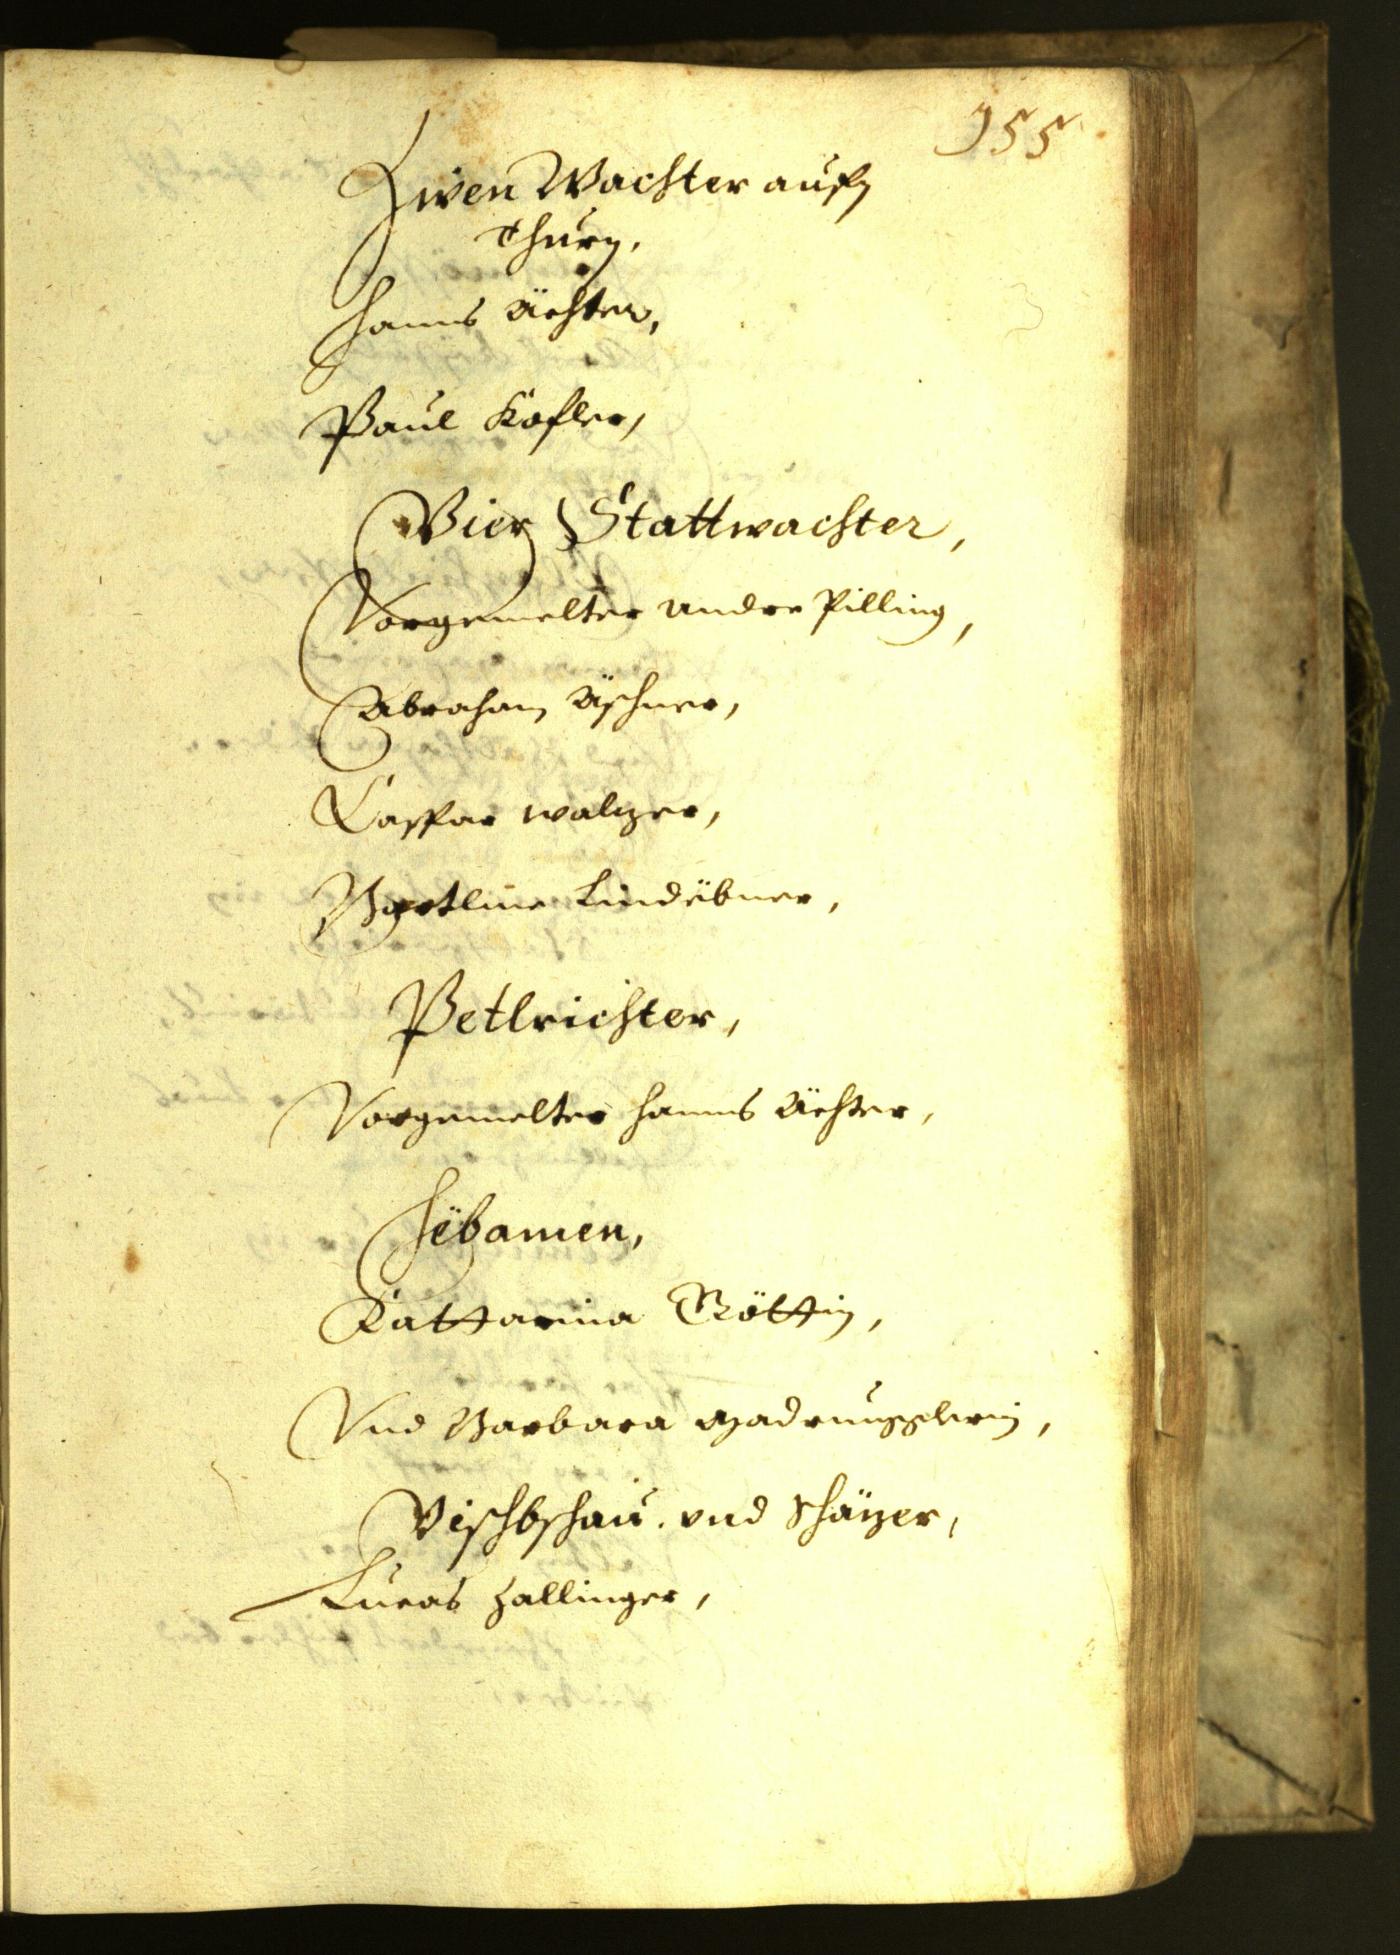 155
Zwen Wachter aufm
Thurn,
Hanns Ächter,
Paul Kofler,
Vier Stattwachter,
Vorgemelter Andre Pilling,
Abraham Äschner,
Caspar Walzer,
Bartlme Lindëbner,
Petlrichter,
Vorgemelter Hanns Ächter,
Hëbamen,
Kattarina Röttin,
Vnd Barbara
Vischbschaü. vnd Schäzer,
Lucas Zallinger,